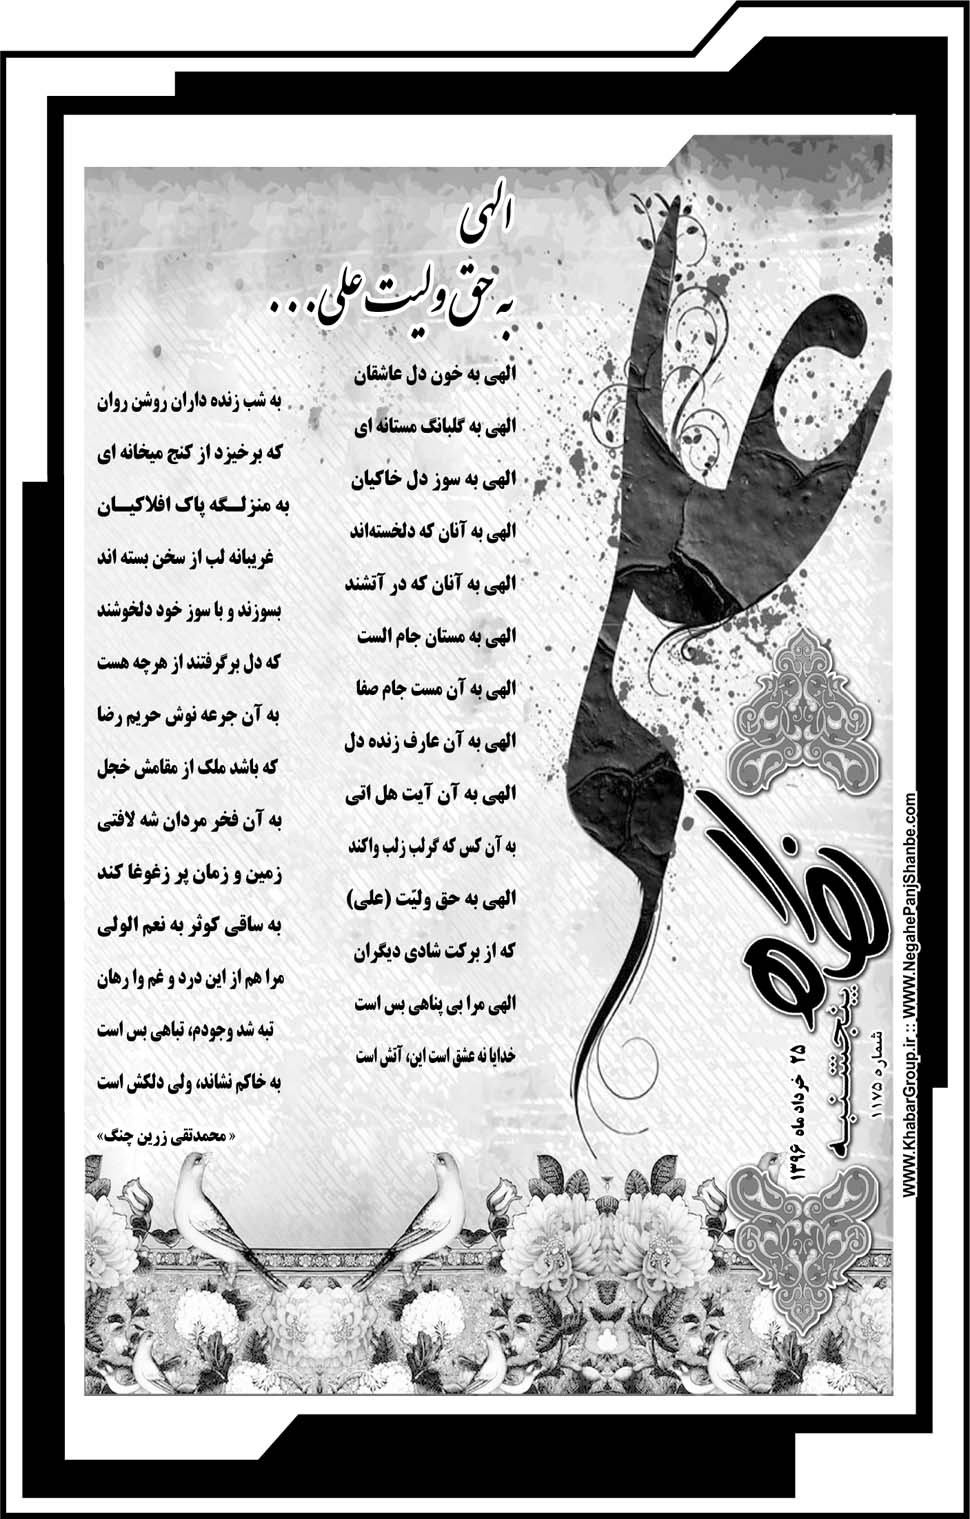 الهی
به حق ولیت علی...
الهی به خون دل عاشقان
به شب زنده داران روشن روان
الهی به گلبانگ مستانه ای
که برخیزد از کنج میخانه ای
الهی به سوز دل خاکیان
به منزلـگه پاک افلاکیـان
الهی به آنان که دلخسته‌اند
غریبانه لب از سخن بسته اند
الهی به آنان که در آتشند
بسوزند و با سوز خود دلخوشند
الهی به مستان جام الست
که دل برگرفتند از هرچه هست
الهی به آن مست جام صفا
به آن جرعه نوش حریم رضا
الهی به آن عارف زنده دل
که باشد ملک از مقامش خجل
الهی به آن آیت هل اتی
به آن فخر مردان شه لافتی
به آن کس که گرلب زلب واکند
زمین و زمان پر زغوغا کند
الهی به حق ولیّت (علی)
به ساقی کوثر به نعم الولی
که از برکت شادی دیگران
مرا هم از این درد و غم وا رهان
الهی مرا بی پناهی بس است
تبه شد وجودم، تباهی بس است
خدایا نه عشق است این، آتش است
به خاکم نشاند، ولی دلکش است
« محمدتقی زرین چنگ»
نگاه
پنجشنبه
۲۵ خرداد ماه ۱۳۹۶
شماره ۱۱۷۵
WWW.KhabarGroup.ir :: WWW.NegahePanjShanbe.com